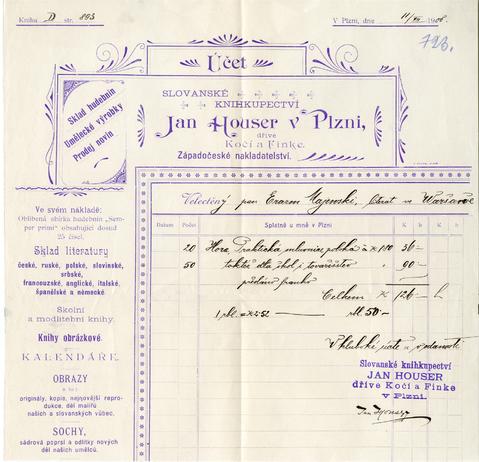 Kniha D str. 893
V Plzni, dne 11/VII 1906.
723.
Účet
Sklad hudebnin
Umělecké výrobky
Prodej novin
SLOVANSKÉ
KNIHKUPECTVÍ
Jan Houser v Plzni,
dříve
Kočí a Finke.
Západočeské nakladatelství.
Ve svém nákladě:
Oblíbená sbírka hudebnin „Sem-
per primi" obsahující dosud
25 čísel.
Sklad literatury
české, ruské, polské, slovinské,
srbské,
francouzské, anglické, italské,
španělské a německé.
Školní
a modlitební knihy.
Knihy obrázkové.
KALENDÁŘE.
OBRAZY
a to:
originály, kopie, nejnovější repro-
dukce, děl malířů
našich a slovanských vůbec.
SOCHY,
sádrová poprsí a odlitky nových
děl našich umělců.
Veletěný pan Erazm Majewski, v Waršavě
Datum Počet Splatné u mně v Plzni
20 Hora, Praktická mluvnice polská à K 1.80 36 —
50 totéž dla škol i 90 —
franko
Celkem K 126 — h
1 rbl. = K 2.52 — rbl. 50 —
V hluboké úctě a oddaností
Slovanské knihkupectví
JAN HOUSER
dříve Kočí a Finke
v Plzni.
Jan Houser